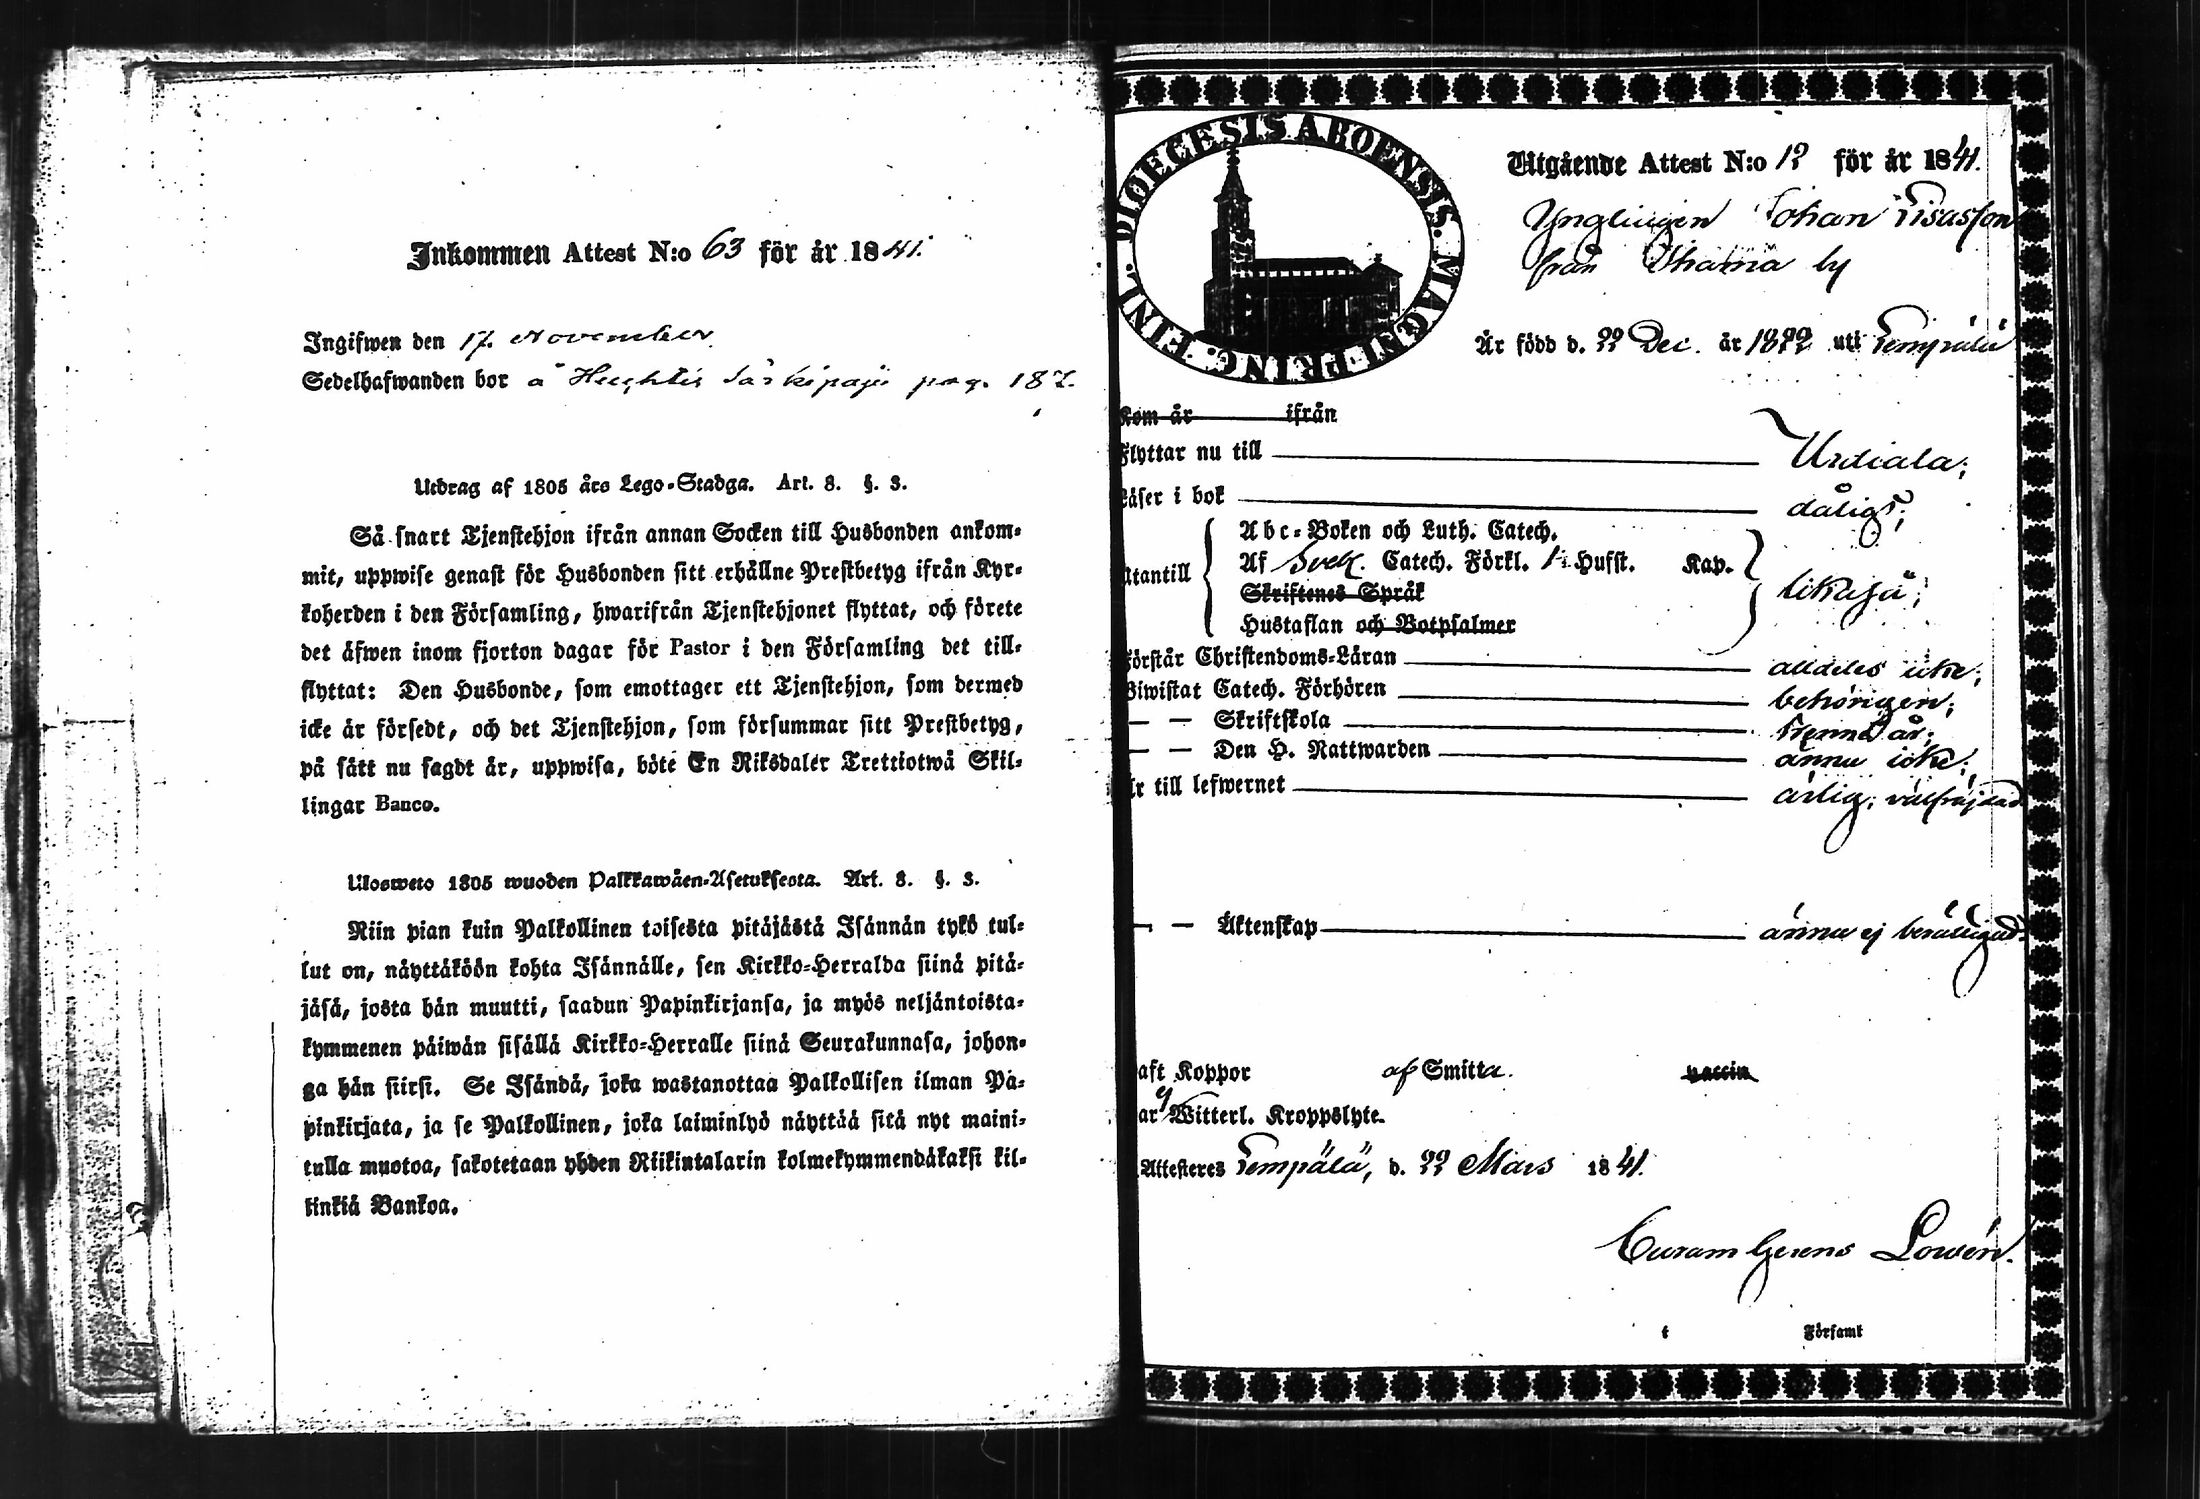 Inkommen Attest N:o 63 för år 1841.
Ingifwen den 17. November
Sedelhafwanden bor å Huhtis Särkipaju pag. 187.
Utdrag af 1805 års Lego-Stadga. Art. 8. §. 3.
Så snart Tjenstehjon ifrån annan Socken till Husbonden ankom-
mit, uppwise genast för Husbonden sitt erhållne Prestbetyg ifrån Kyr-
koherden i den Församling, hwarifrån Tjenstehjonet flyttat, och förete
det äfwen inom fjorton dagar för Pastor i den Församling det till-
flyttat: Den Husbonde, som emottager ett Tjenstehjon, som dermed
icke är försedt, och det Tjenstehjon, som försummar sitt Prestbetyg,
på sätt nu sagdt är, uppwisa, böte En Riksdaler Trettiotwå Skil-
lingar Banco.
Ulosweto 1805 wuoden Palkkawäen-Asetuksesta. Art. 8. §. 3.
Niin pian kuin Palkollinen toisesta pitäjästä Isännän tykö tul-
lut on, näyttäköön kohta Isännälle, sen Kirkko-Herralda siinä pitä-
jäsä, josta hän muutti, saadun Papinkirjansa, ja myös neljäntoista-
kymmenen päiwän sisällä Kirkko-Herralle siinä Seurakunnasa, johon-
ga hän siirsi. Se Isändä, joka wastanottaa Palkollisen ilman Pa-
pinkirjata, ja se Palkollinen, joka laiminlyö näyttää sitä nyt maini-
tulla muotoa, sakotetaan yhden Riikintalarin kolmekymmendäkaksi kil-
linkiä Bankoa.
DIOECESIS ABOENSIS. MAGNI PRINC. FINL.
Utgående Attest N:o 12 för år 1841.
Ynglingen Johan Lisasson
från by
Är född d. 22 Dec. år 1822 uti Lempälä
Kom år ifrån
Flyttar nu till Urdiala;
Läser i bok dåligt;
Abc-Boken och Luth. Catech.
Af Sveb. Catech. Förkl. 1 Hufst. Kap.
Utantill likaså;
Skriftenes Språk
Hustaflan och Botpsalmer
Förstår Christendoms-Läran alldeles icke;
Biwistat Catech. Förhören behörigen;
— — Skriftskola denna år;
— — Den H. Nattwarden ännu icke;
Är till lefwernet ärlig, välfräjdad
— — Äktenskap ännu ej beräktigad.
aft Koppor af Smitta. vaccin
ar ej Witterl. Kroppslyte.
Attesteres Lempälä, d. 22 Mars 1841.
Curam Gerens Lowén.
i Församl